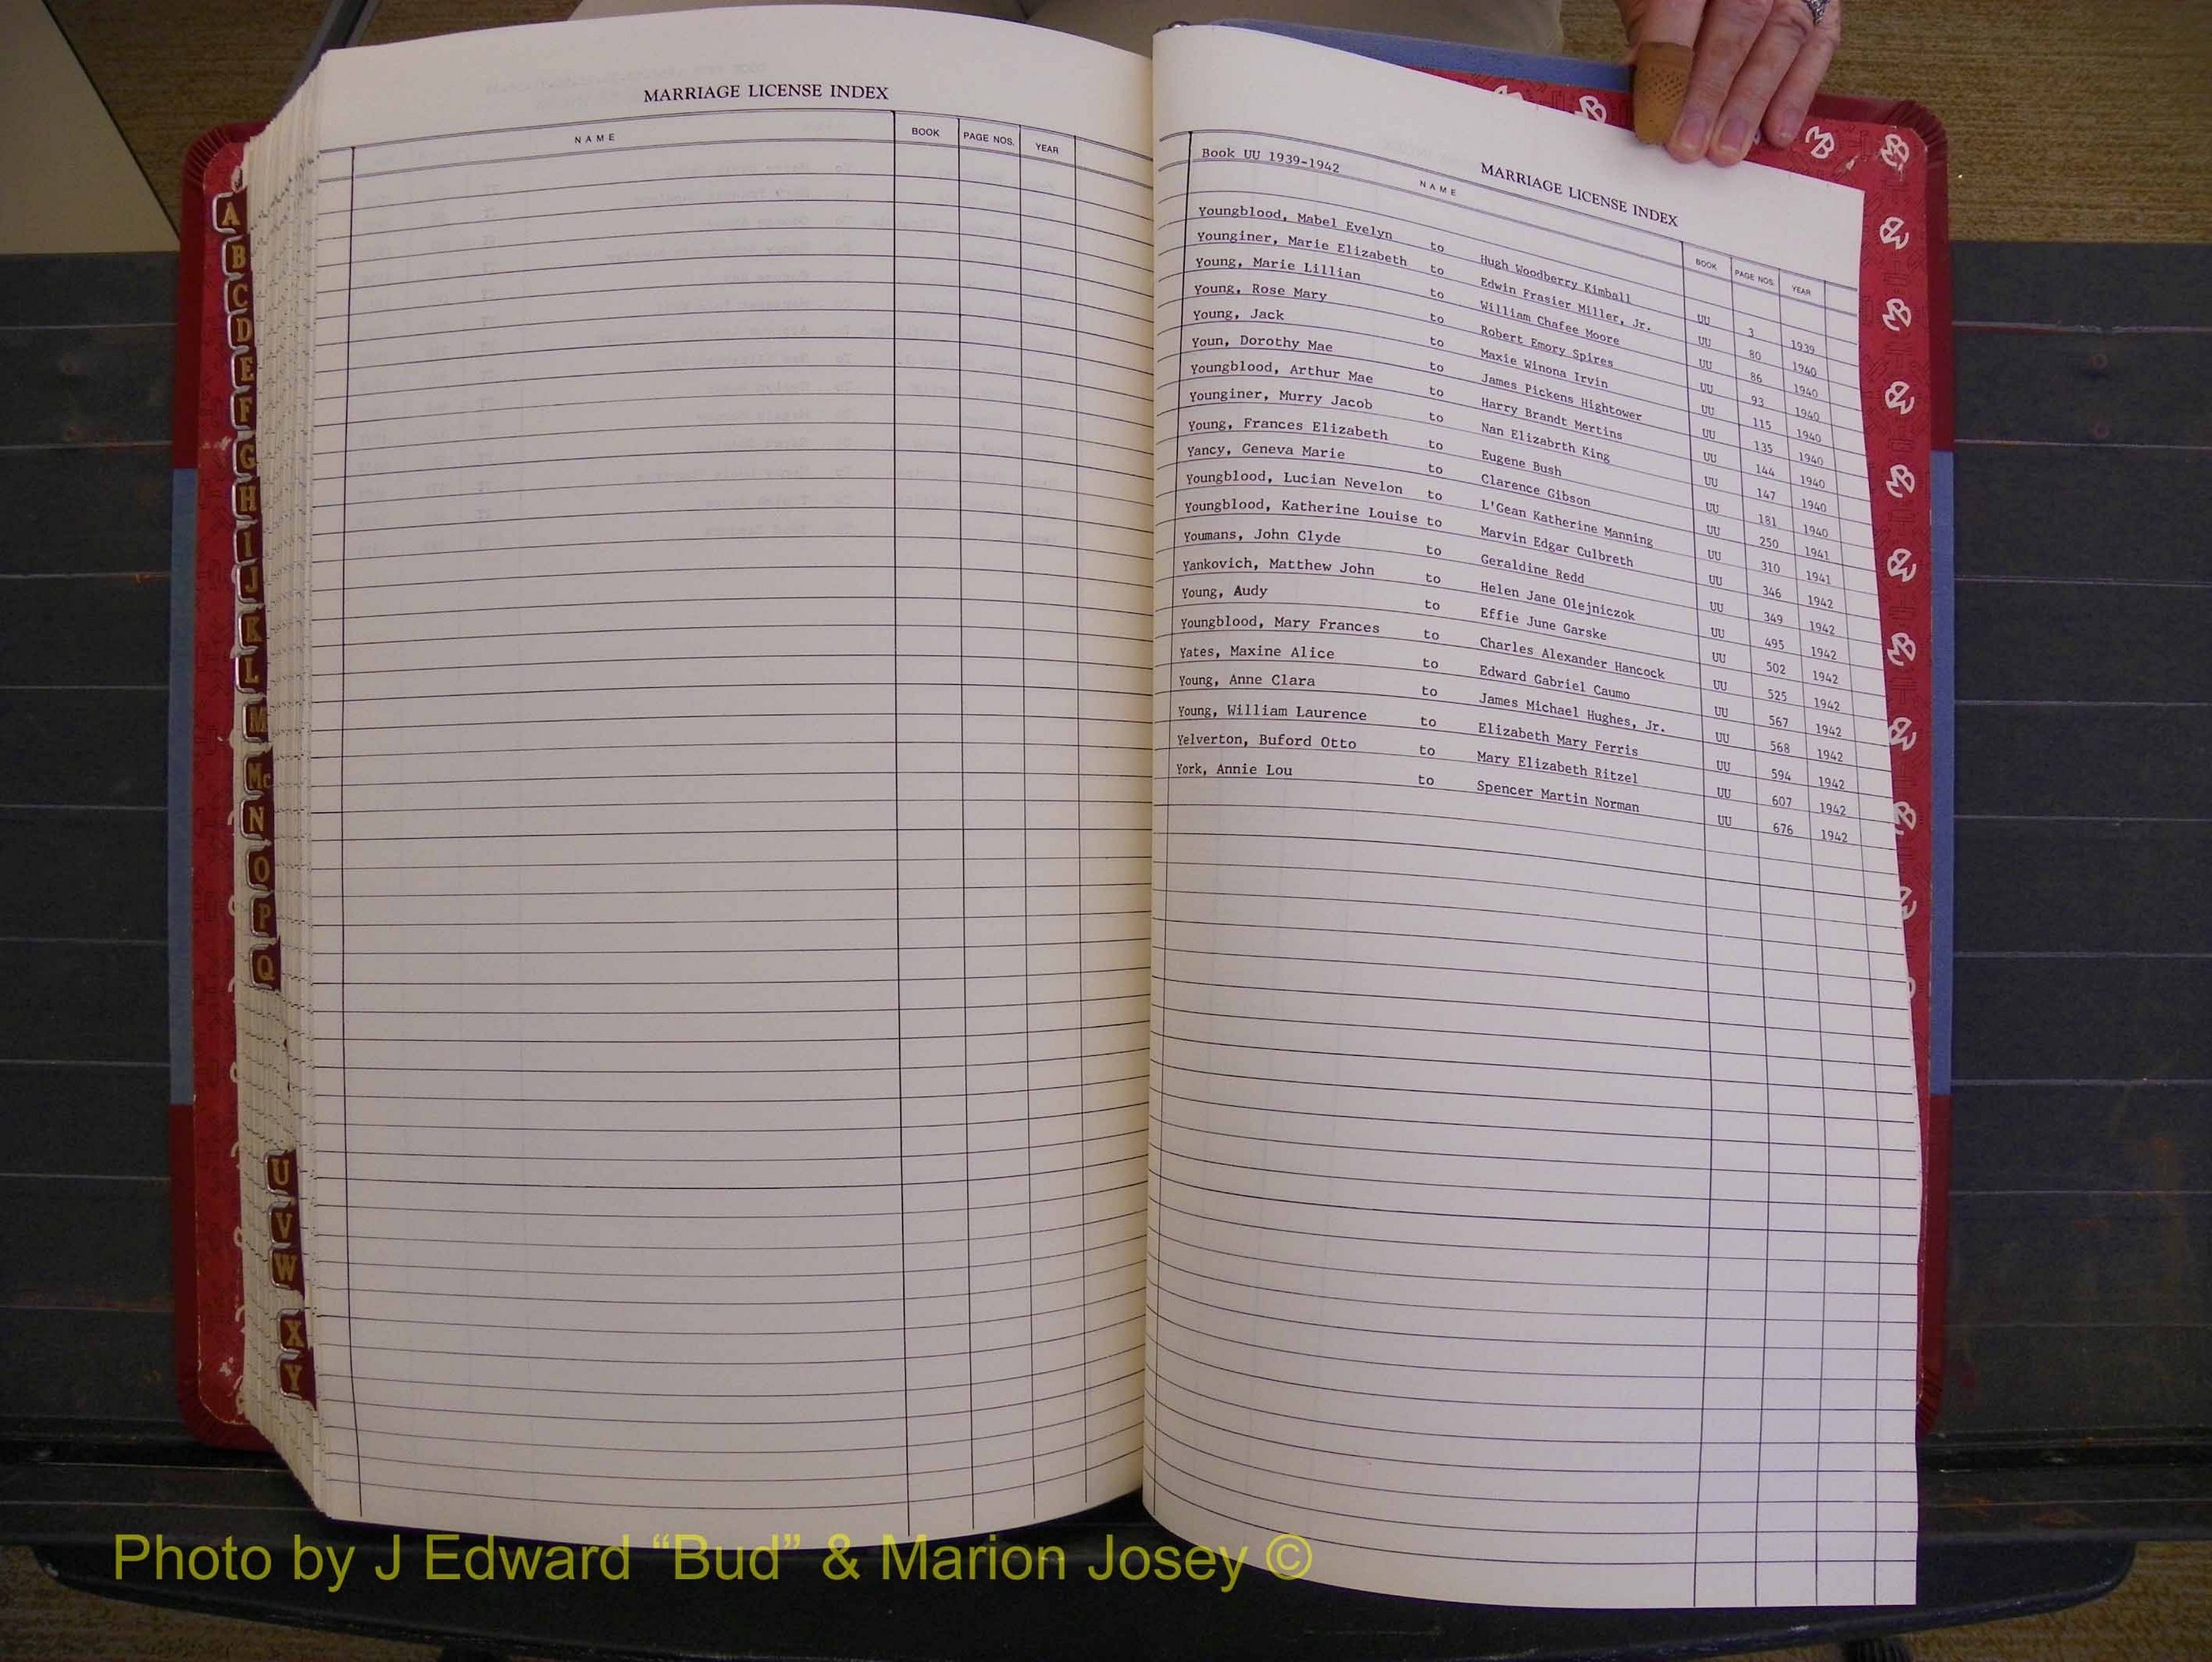 MARRIAGE LICENSE INDEX
NAME BOOK PAGE NOS. YEAR
A
B
C
D
E
F
G
H
I
J
K
L
M
Mc
N
O
P
Q
U
V
W
X
Y
MARRIAGE LICENSE INDEX
Book UU 1939-1942
NAME BOOK PAGE NOS. YEAR
Youngblood, Mabel Evelyn to Hugh Woodberry Kimball UU 3 1939
Younginer, Marie Elizabeth to Edwin Frasier Miller, Jr. UU 80 1940
Young, Marie Lillian to William Chafee Moore UU 86 1940
Young, Rose Mary to Robert Emory Spires UU 93 1940
Young, Jack to Maxie Winona Irvin UU 115 1940
Youn, Dorothy Mae to James Pickens Hightower UU 135 1940
Youngblood, Arthur Mae to Harry Brandt Mertins UU 144 1940
Younginer, Murry Jacob to Nan Elizabrth King UU 147 1940
Young, Frances Elizabeth to Eugene Bush UU 181 1940
Yancy, Geneva Marie to Clarence Gibson UU 250 1941
Youngblood, Lucian Nevelon to L'Gean Katherine Manning UU 310 1941
Youngblood, Katherine Louise to Marvin Edgar Culbreth UU 346 1942
Youmans, John Clyde to Geraldine Redd UU 349 1942
Yankovich, Matthew John to Helen Jane Olejniczok UU 495 1942
Young, Audy to Effie June Garske UU 502 1942
Youngblood, Mary Frances to Charles Alexander Hancock UU 525 1942
Yates, Maxine Alice to Edward Gabriel Caumo UU 567 1942
Young, Anne Clara to James Michael Hughes, Jr. UU 568 1942
Young, William Laurence to Elizabeth Mary Ferris UU 594 1942
Yelverton, Buford Otto to Mary Elizabeth Ritzel UU 607 1942
York, Annie Lou to Spencer Martin Norman UU 676 1942
Photo by J Edward “Bud” & Marion Josey ©